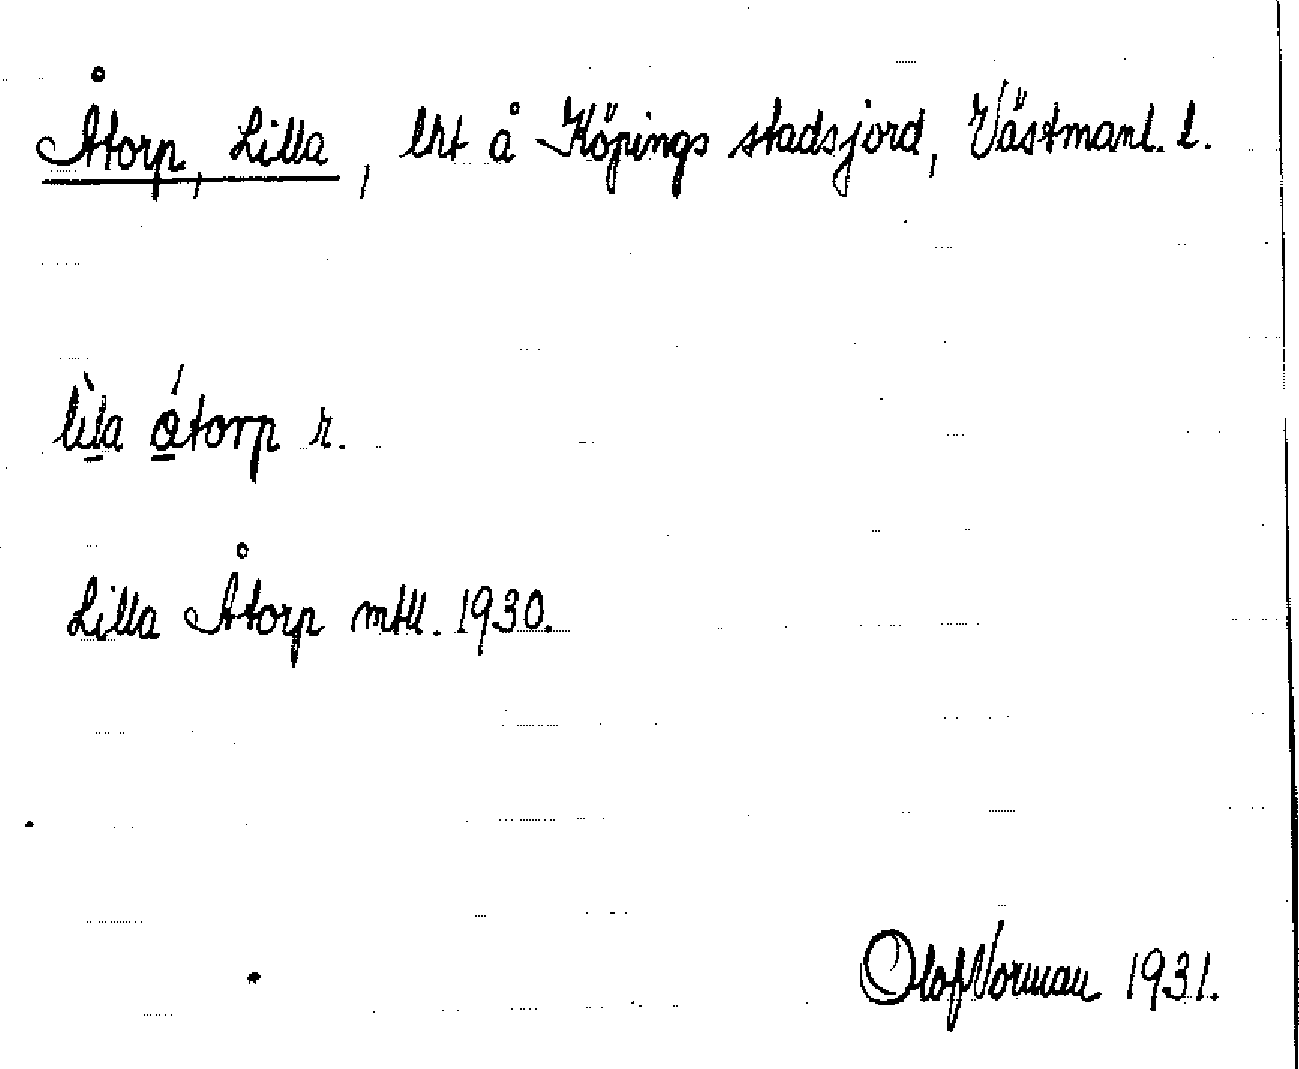 Åtorp, Lilla, lht å Köpings stadsjord, Västmanl. l.
lìla ǻtorp r.
Lilla Åtorp mtll. 1930.
Olof Norman 1931.